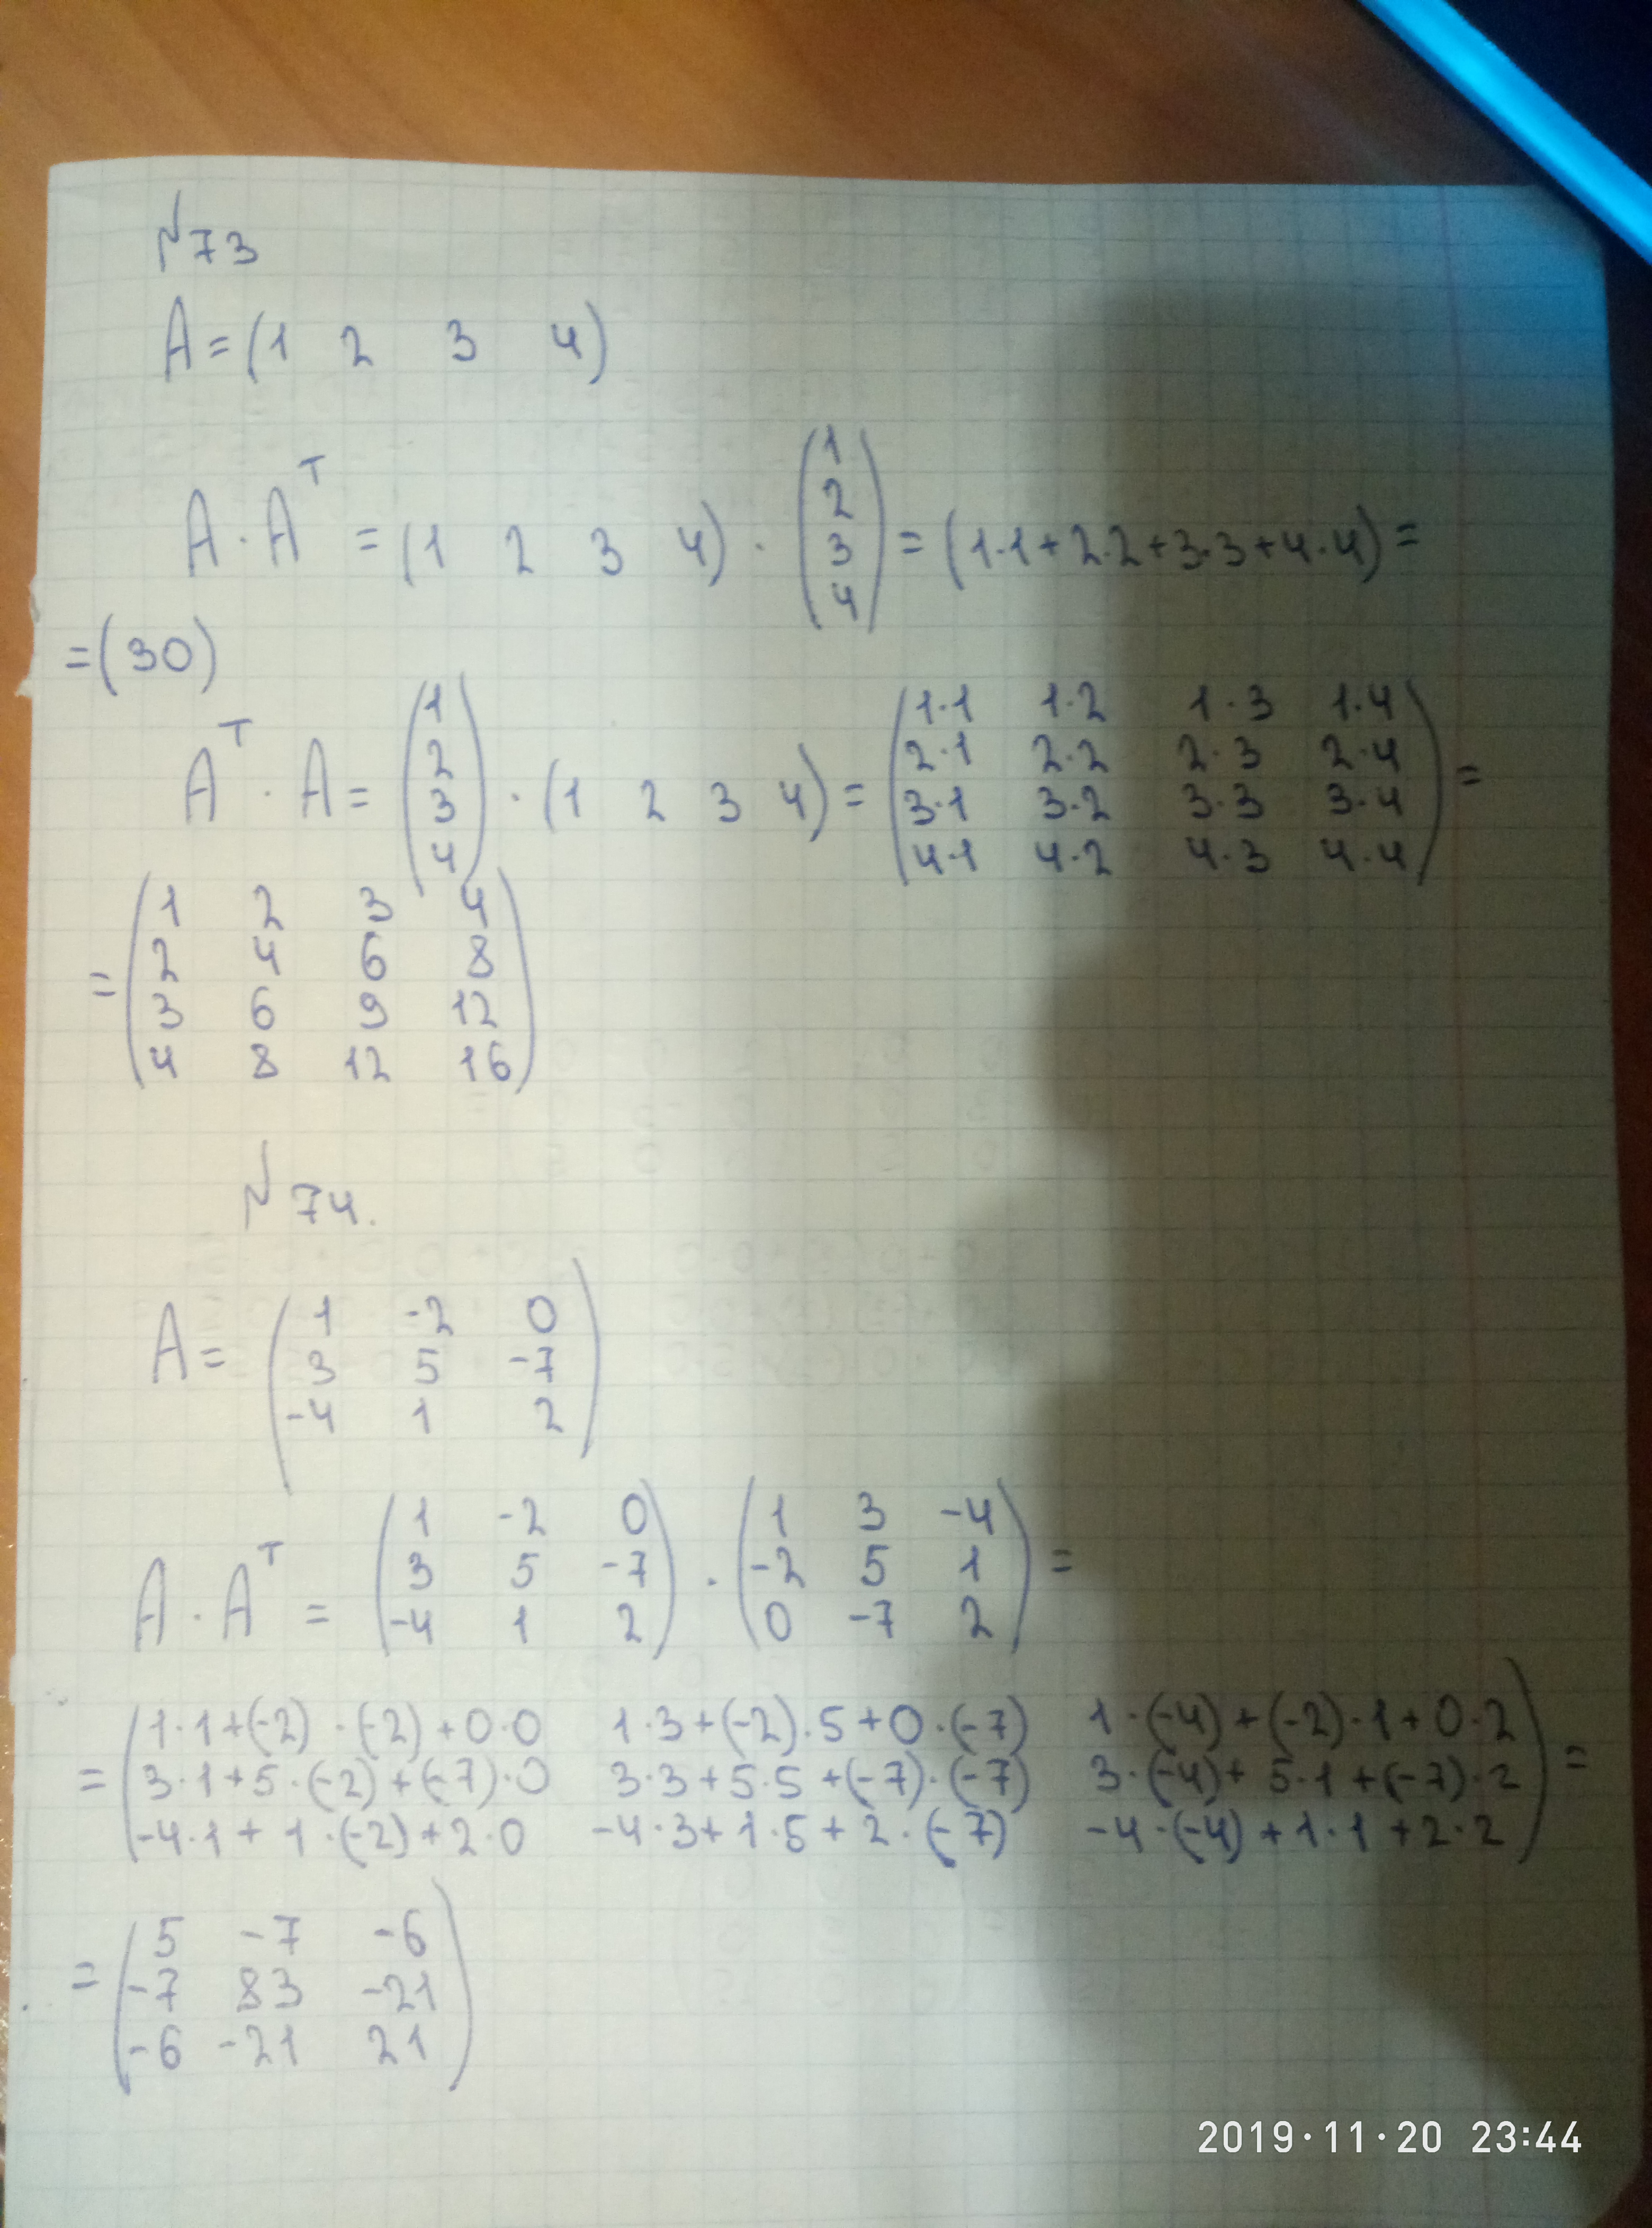 №73
A = (1 2 3 4)
A · Aᵀ = (1 2 3 4) · (1 2 3 4) = (1·1+2·2+3·3+4·4) =
= (30)
Aᵀ · A = (1 2 3 4) · (1 2 3 4) = (1·1 1·2 1·3 1·4
2·1 2·2 2·3 2·4
3·1 3·2 3·3 3·4
4·1 4·2 4·3 4·4) =
= (1 2 3 4
2 4 6 8
3 6 9 12
4 8 12 16)
№74.
A = (1 -2 0
3 5 -7
-4 1 2)
A · Aᵀ = (1 -2 0
3 5 -7
-4 1 2) · (1 3 -4
-2 5 1
0 -7 2) =
= (1·1+(-2)·(-2)+0·0 1·3+(-2)·5+0·(-7) 1·(-4)+(-2)·1+0·2
3·1+5·(-2)+(-7)·0 3·3+5·5+(-7)·(-7) 3·(-4)+5·1+(-7)·2
-4·1+1·(-2)+2·0 -4·3+1·5+2·(-7) -4·(-4)+1·1+2·2) =
= (5 -7 -6
-7 83 -21
-6 -21 21)
2019·11·20 23:44